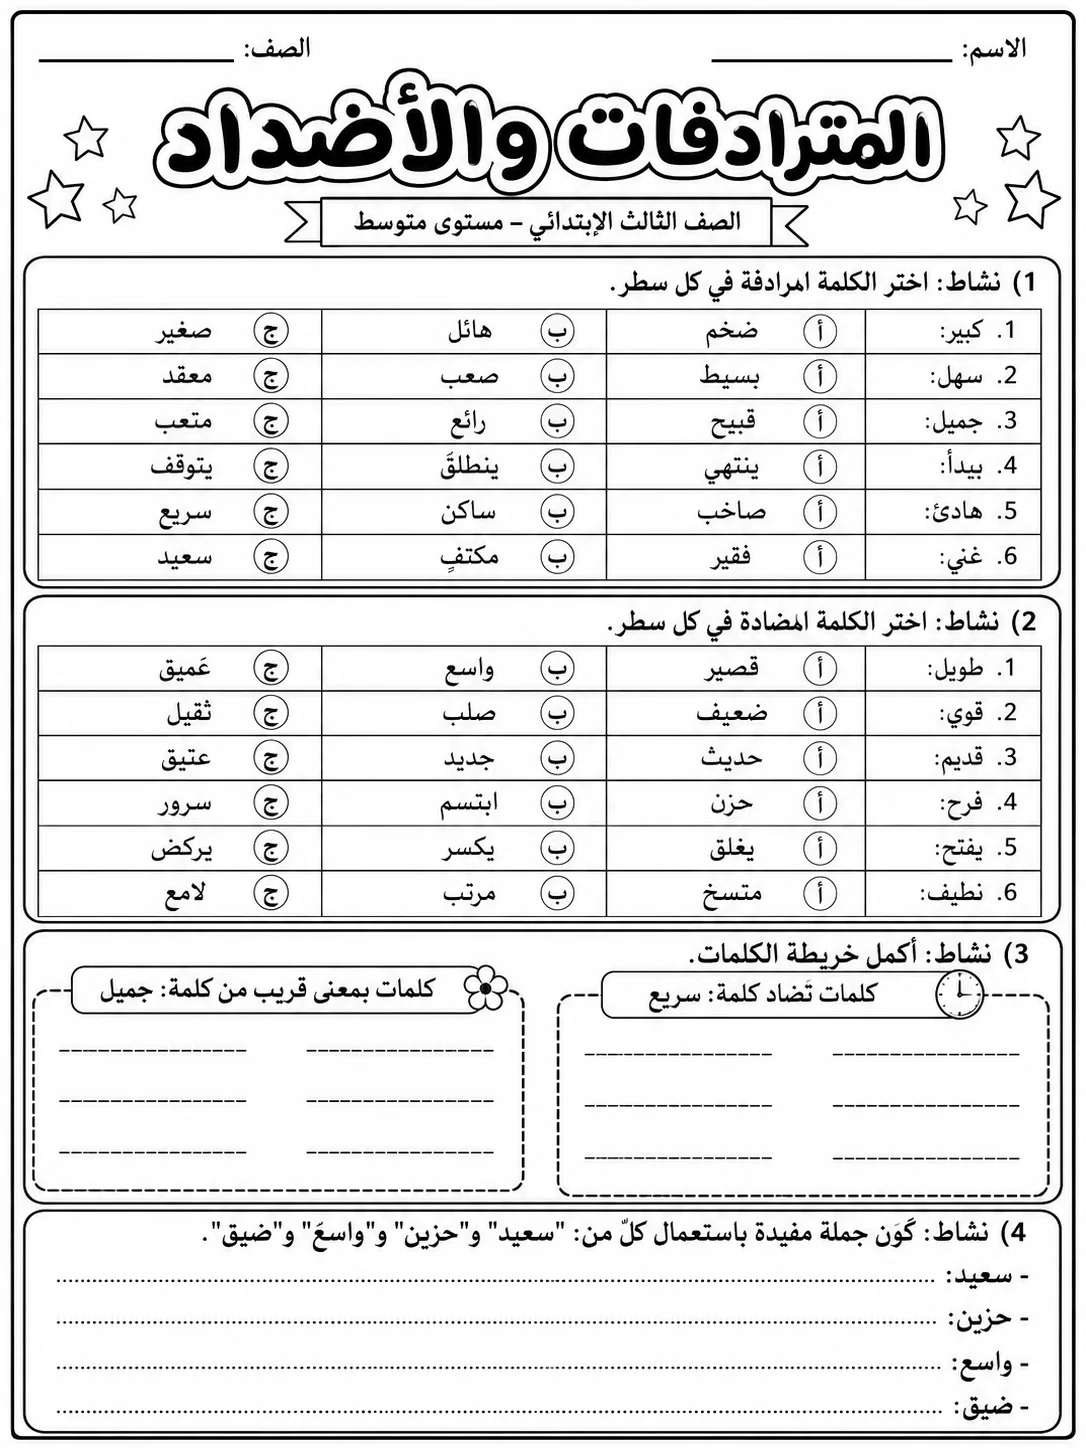 الاسم: ____________ الصف: ____________
المترادفات والأضداد
الصف الثالث الإبتدائي – مستوى متوسط
1) نشاط: اختر الكلمة المرادفة في كل سطر.
1. كبير: أ ضخم ب هائل ج صغير
2. سهل: أ بسيط ب صعب ج معقد
3. جميل: أ قبيح ب رائع ج متعب
4. بيدأ: أ ينتهي ب ينطلقَ ج يتوقف
5. هادئ: أ صاخب ب ساكن ج سريع
6. غني: أ فقير ب مكتفٍ ج سعيد
2) نشاط: اختر الكلمة المضادة في كل سطر.
1. طويل: أ قصير ب واسع ج عَميق
2. قوي: أ ضعيف ب صلب ج ثقيل
3. قديم: أ حديث ب جديد ج عتيق
4. فرح: أ حزن ب ابتسم ج سرور
5. يفتح: أ يغلق ب يكسر ج يركض
6. نطيف: أ متسخ ب مرتب ج لامع
3) نشاط: أكمل خريطة الكلمات.
كلمات تَضاد كلمة: سريع
كلمات بمعنى قريب من كلمة: جميل
4) نشاط: كَوَن جملة مفيدة باستعمال كلّ من: "سعيد" و"حزين" و"واسعَ" و"ضيق".
- سعيد:
- حزين:
- واسع:
- ضيق: